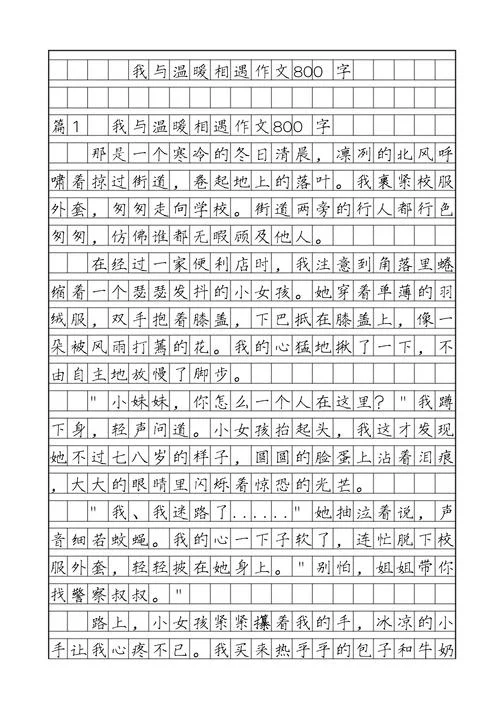 我与温暖相遇作文800 字
篇1 我与温暖相遇作文800 字
那是一个寒冷的冬日清晨，凛冽的北风呼
啸着掠过街道，卷起地上的落叶。我裹紧校服
外套，匆匆走向学校。街道两旁的行人都行色
匆匆，仿佛谁都无暇顾及他人。
在经过一家便利店时，我注意到角落里蜷
缩着一个瑟瑟发抖的小女孩。她穿着单薄的羽
绒服，双手抱着膝盖，下巴抵在膝盖上，像一
朵被风雨打蔫的花。我的心猛地揪了一下，不
由自主地放慢了脚步。
"小妹妹，你怎么一个人在这里？"我蹲
下身，轻声问道。小女孩抬起头，我这才发现
她不过七八岁的样子，圆圆的脸蛋上沾着泪痕
，大大的眼睛里闪烁着惊恐的光芒。
"我、我迷路了......"她抽泣着说，声
音细若蚊蝇。我的心一下子软了，连忙脱下校
服外套，轻轻披在她身上。"别怕，姐姐带你
找警察叔叔。"
路上，小女孩紧紧攥着我的手，冰凉的小
手让我心疼不已。我买来热乎乎的包子和牛奶